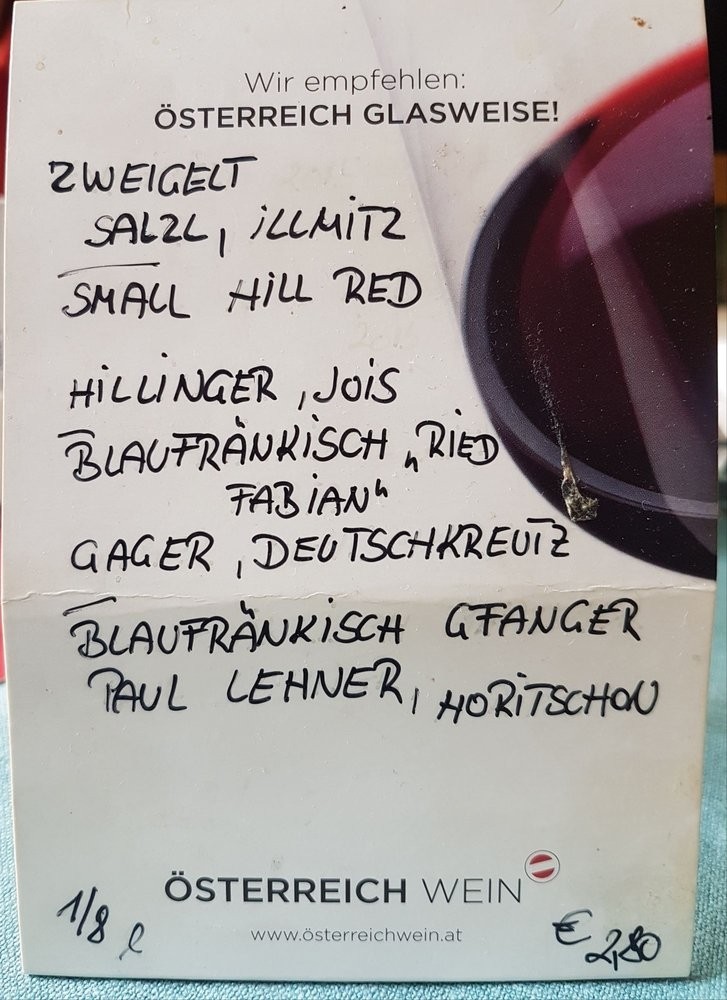 Wir empfehlen:
ÖSTERREICH GLASWEISE!
ZWEIGELT
SALZL, ILLMITZ
SMALL HILL RED
HILLINGER, JOIS
BLAUFRÄNKISCH „RIED
FABIAN“
GAGER, DEUTSCHKREUTZ
BLAUFRÄNKISCH GFANGER
PAUL LEHNER, HORITSCHON
ÖSTERREICH WEIN
1/8 l
www.österreichwein.at
€ 2,80